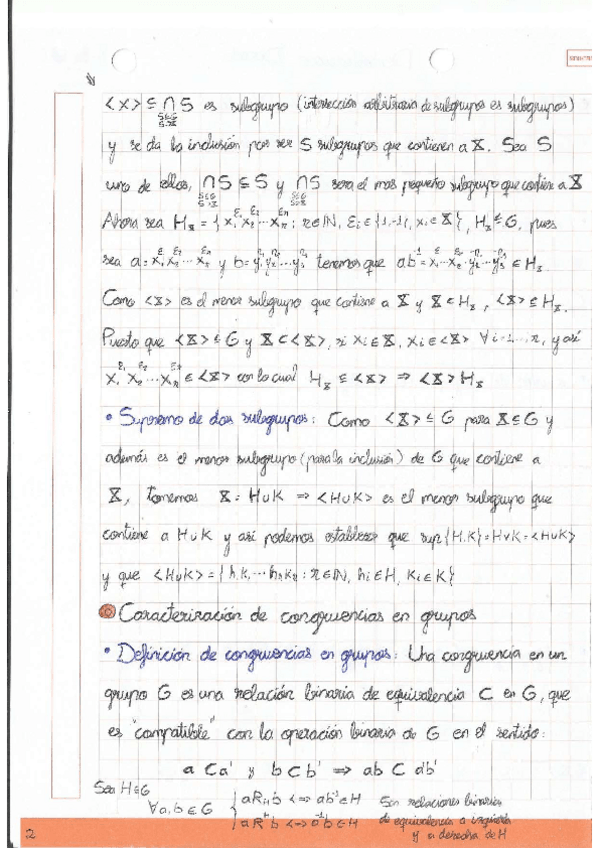 <X> ≤ ∩S es subgrupo (intersección arbitraria de subgrupos es subgrupos)
S≤G
S⊇X
y se da la inclusión por ser S subgrupos que contienen a X. Sea S
uno de ellos, ∩S ⊆ S y ∩S sera el mas pequeño subgrupo que contiene a X
S≤G S⊇X S≤G S⊇X
Ahora sea H_X = {x₁^ε₁ x₂^ε₂ ⋯ xₙ^εₙ : n∈ℕ, εᵢ∈{1,-1}, xᵢ∈X}, H_X ≤ G, pues
sea a = x₁^ε₁ x₂^ε₂ ⋯ xₙ^εₙ y b = y₁^η₁ y₂^η₂ ⋯ yₛ^ηₛ tenemos que ab⁻¹ = x₁^ε₁ ⋯ xₙ^εₙ ⋯ ∈ H_X.
Como <X> es el menor subgrupo que contiene a X y X ⊂ H_X, <X> ≤ H_X.
Puesto que <X> ≤ G y X ⊂ <X>, si xᵢ∈X, xᵢ∈<X> ∀i=1...n, y así
x₁^ε₁ x₂^ε₂ ⋯ xₙ^εₙ ∈ <X> con lo cual H_X ≤ <X> ⇒ <X> H_X
• Supremo de dos subgrupos: Como <X> ≤ G para X ⊆ G y
además es el menor subgrupo (para la inclusión) de G que contiene a
X, tomemos X = H∪K ⇒ <H∪K> es el menor subgrupo que
contiene a H∪K y así podemos establecer que sup{H,K} = H∨K = <H∪K>
y que <H∪K> = {h₁k₁ ⋯ hₙkₙ : n∈ℕ, hᵢ∈H, kᵢ∈K}
Caracterización de congruencias en grupos
• Definición de congruencias en grupos: Una congruencia en un
grupo G es una relación binaria de equivalencia C en G, que
es "compatible" con la operación binaria de G en el sentido:
a C a' y b C b' ⇒ ab C a'b'
Sea H≤G
∀a,b∈G { aR_H b <=> ab⁻¹∈H Son relaciones binarias
aR^H b <=> a⁻¹b∈H de equivalencia a izquierda
y a derecha de H
2